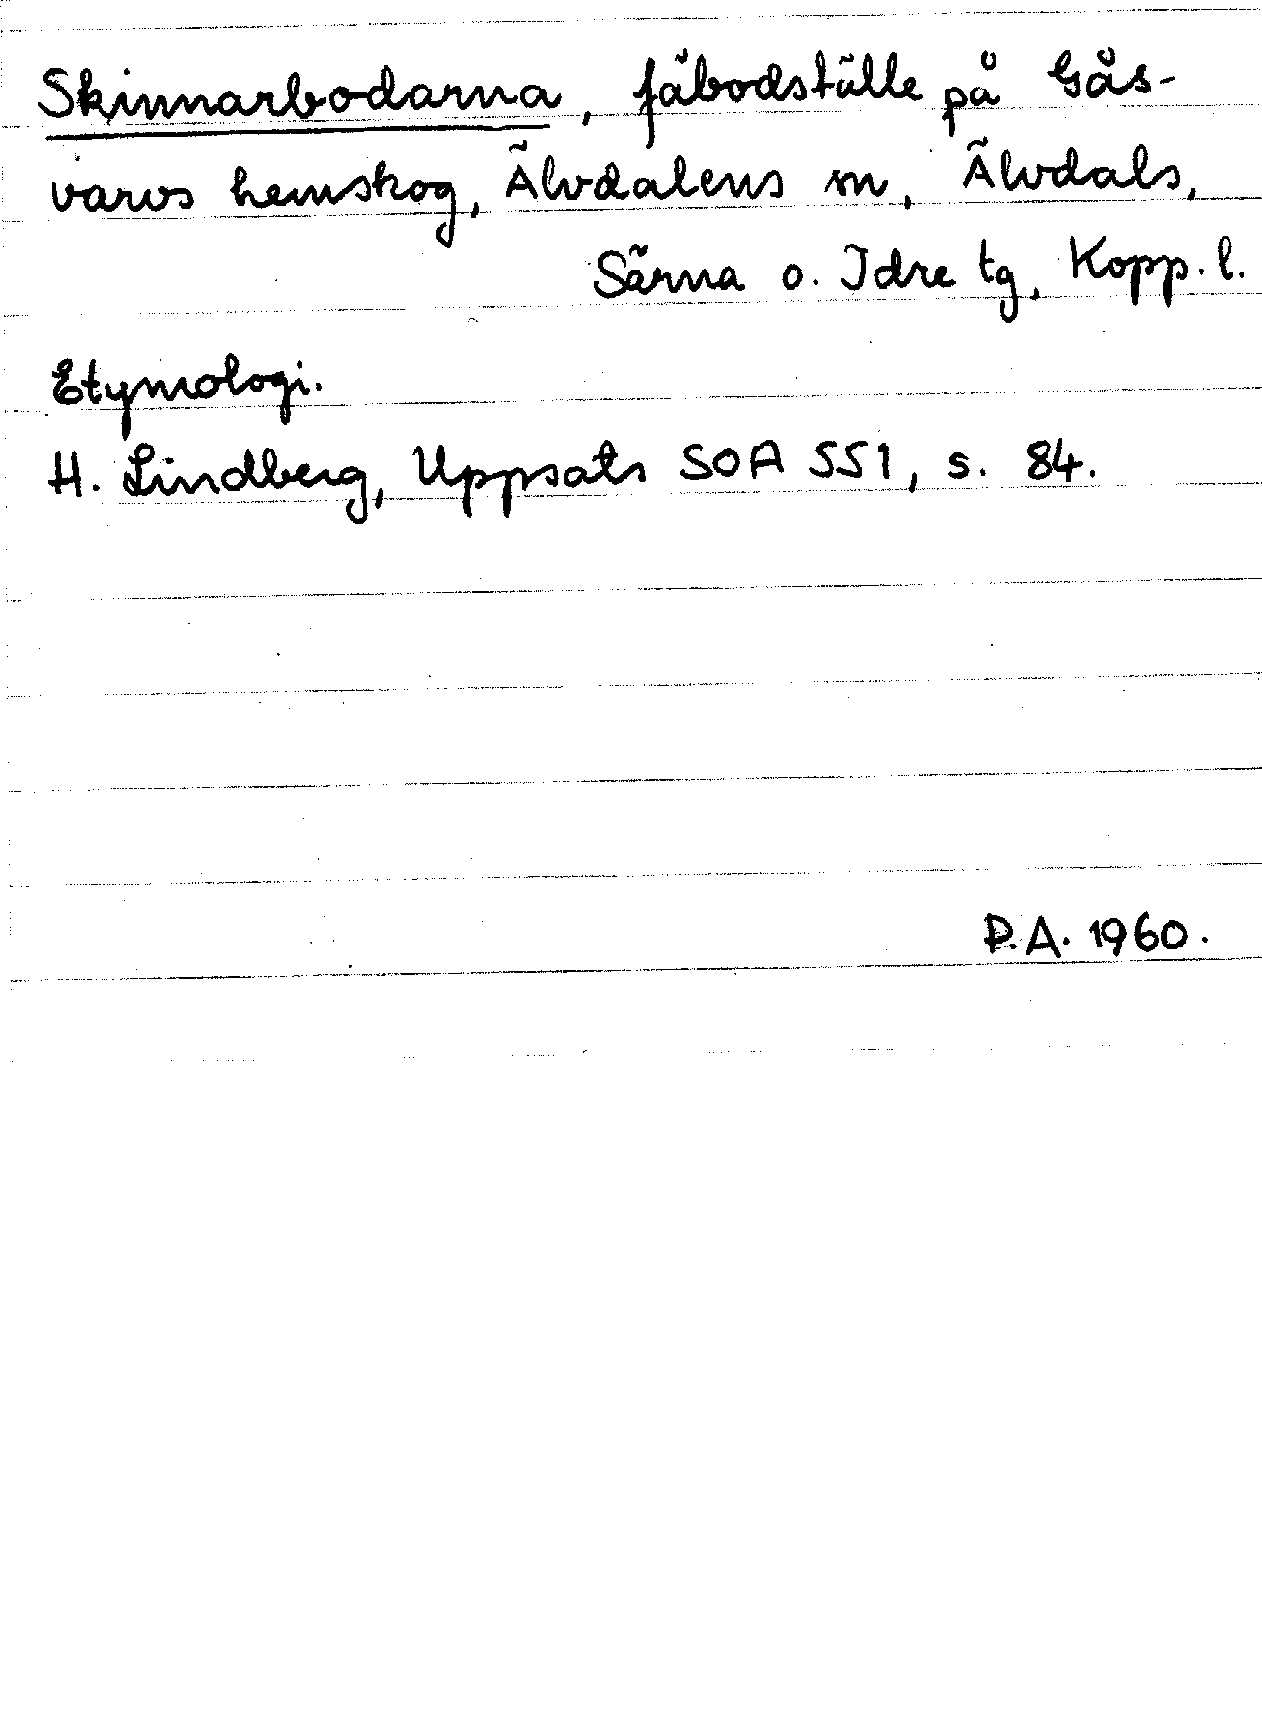 Skinnarbodarna, fäbodställe på Gås-
varvs hemskog, Älvdalens sn, Älvdals,
Särna o. Idre tg, Kopp. l.
Etymologi.
H. Lindberg, Uppsats SOA 551, s. 84.
P.A. 1960.